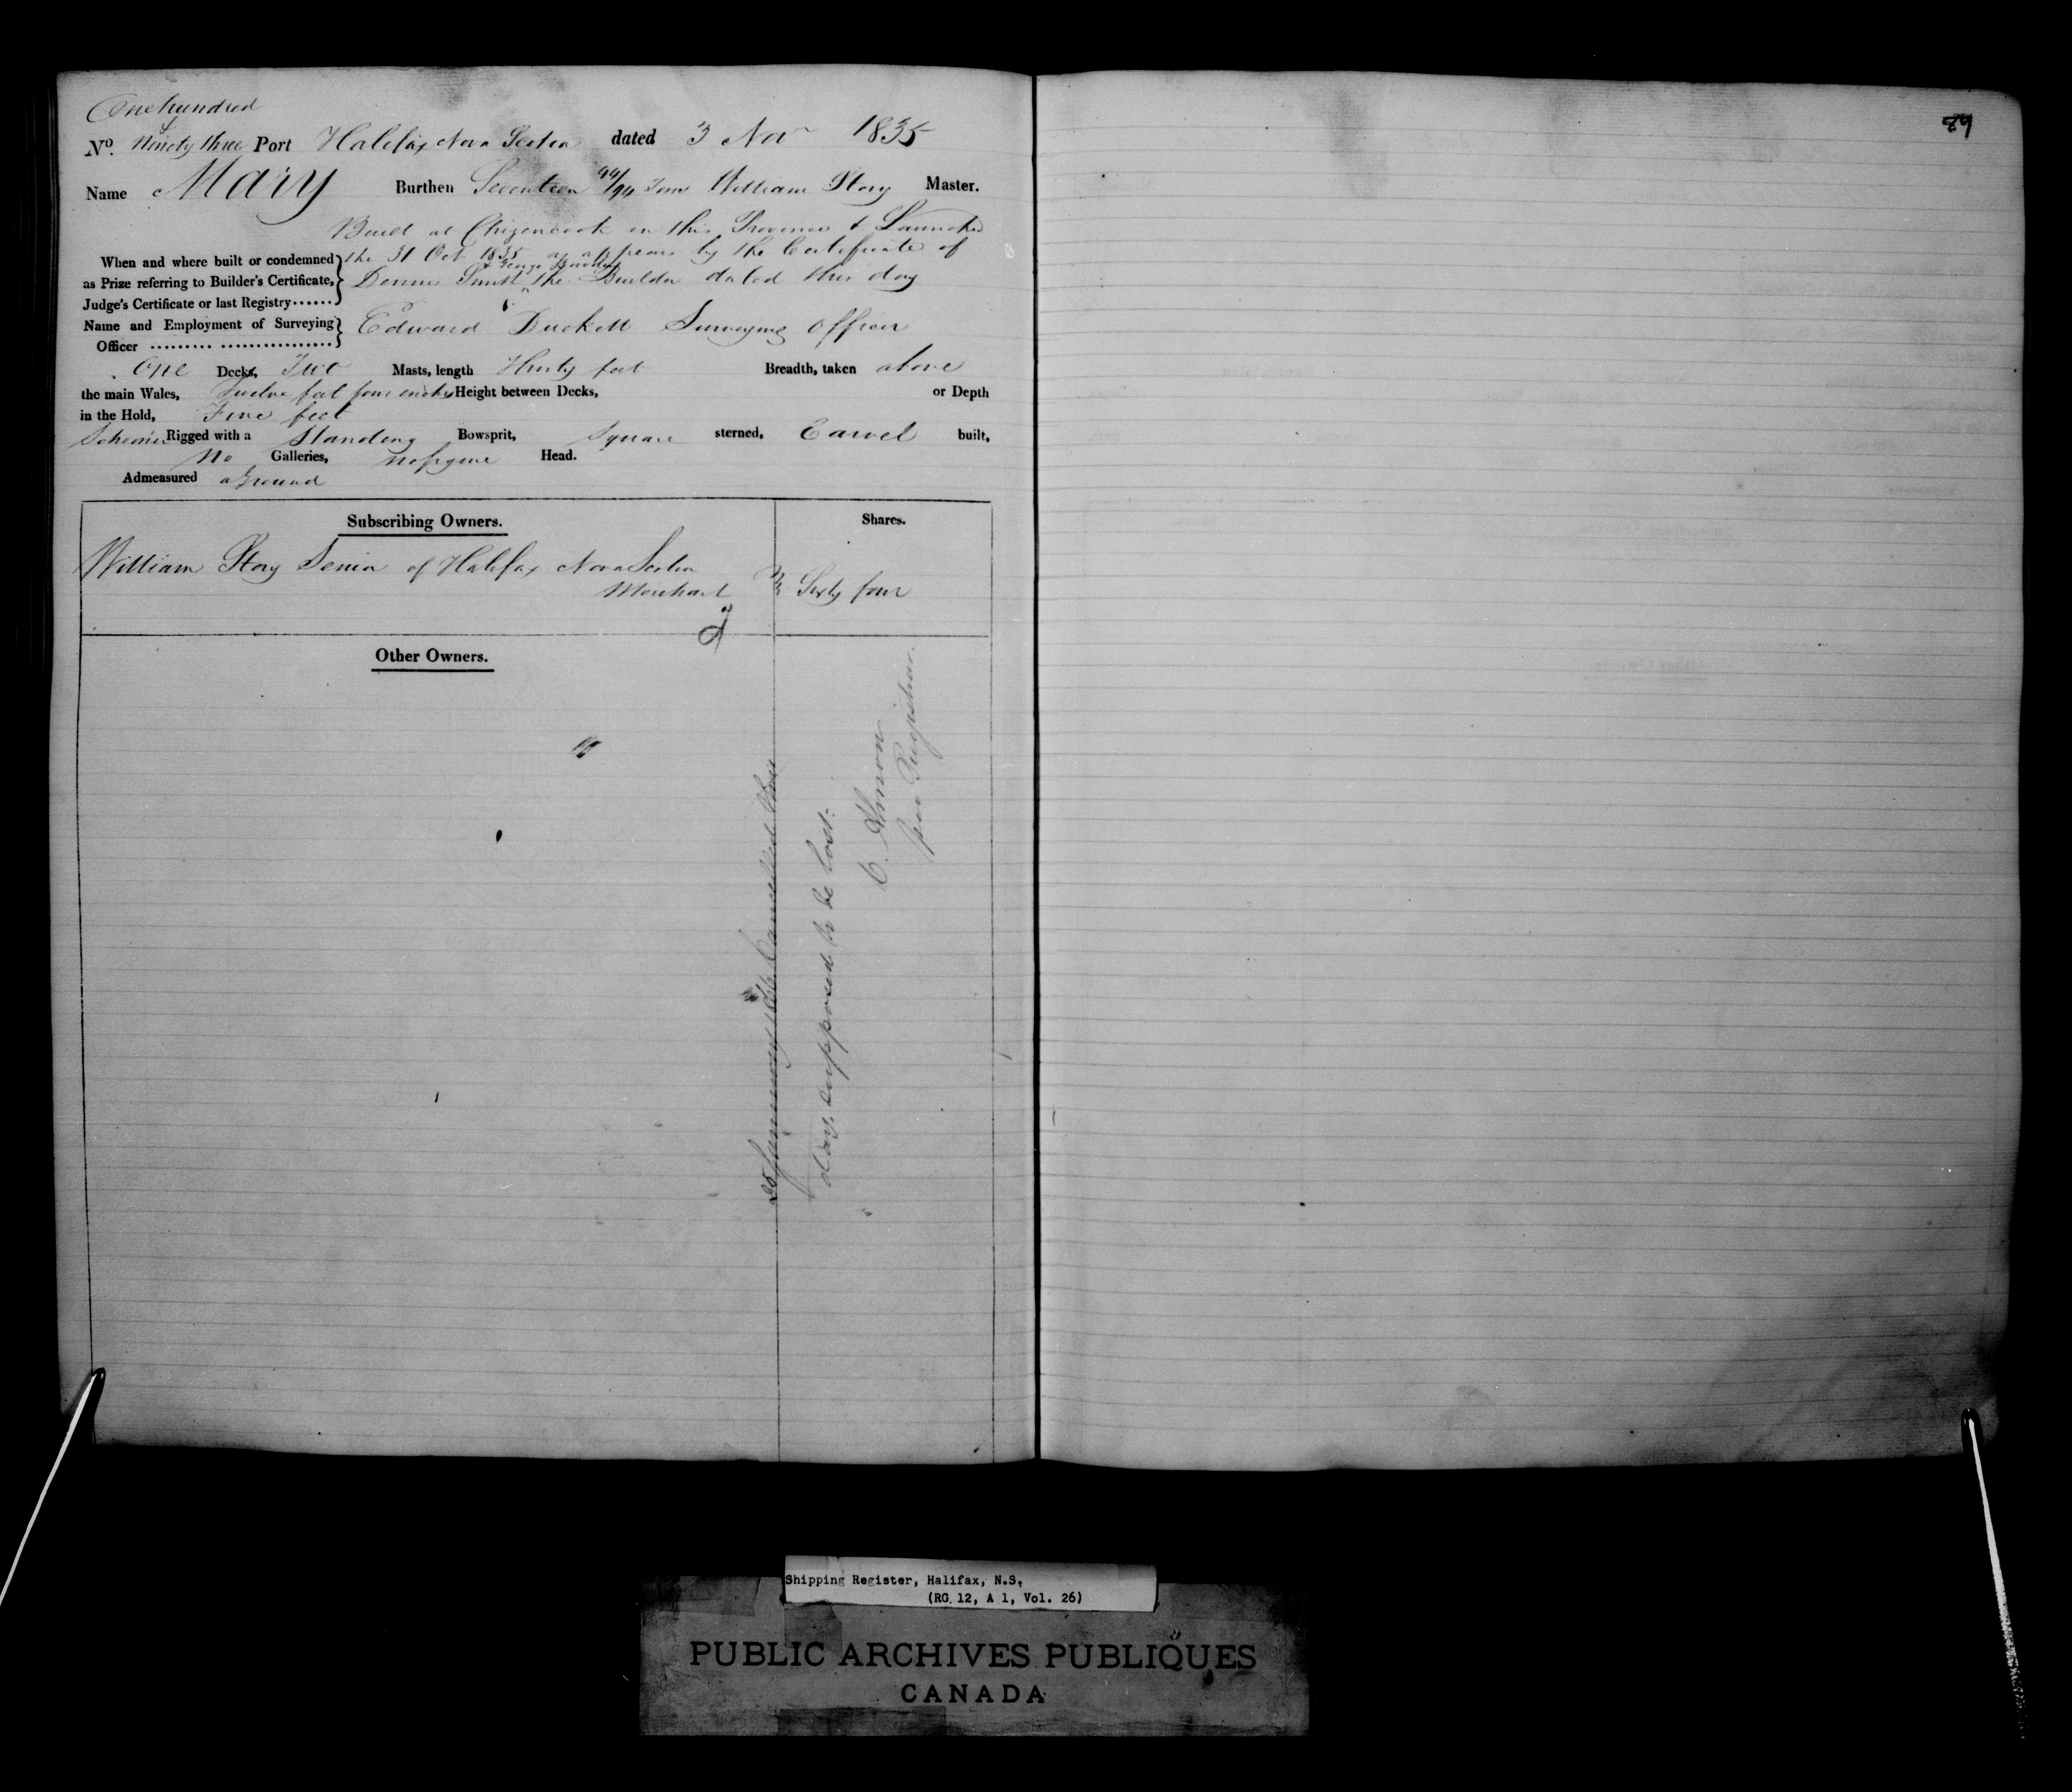 One hundred
&
No. Ninety three Port Halifax Nova Scotia dated 3 Nov 1835
Name Mary Burthen Seventeen 94 Tons William Story Master.
Built at Chizencook in this Province & Launched
When and where built or condemned the 31 Oct 1835 as appears by the Certificate of
as Prize referring to Builder's Certificate, Dennis the Builder dated this day
Judge's Certificate or last Registry......
Name and Employment of Surveying Edward Duckett Surveying Officer
Officer ......... ...............
One Decks, Two Masts, length Thirty feet Breadth, taken above
the main Wales, Twelve feet four inches Height between Decks, or Depth
in the Hold, Five feet
Schooner Rigged with a Standing Bowsprit, Square sterned, Carvel built,
No Galleries, no figure Head.
Admeasured aground
Subscribing Owners. Shares.
William Story Senior of Halifax Nova Scotia
Merchant Sixty four
Other Owners.
Cancelled this
day, supposed to be lost.
C. Almon
pro Registrar.
89
Shipping Register, Halifax, N.S.
(RG 12, A 1, Vol. 26)
PUBLIC ARCHIVES PUBLIQUES
CANADA